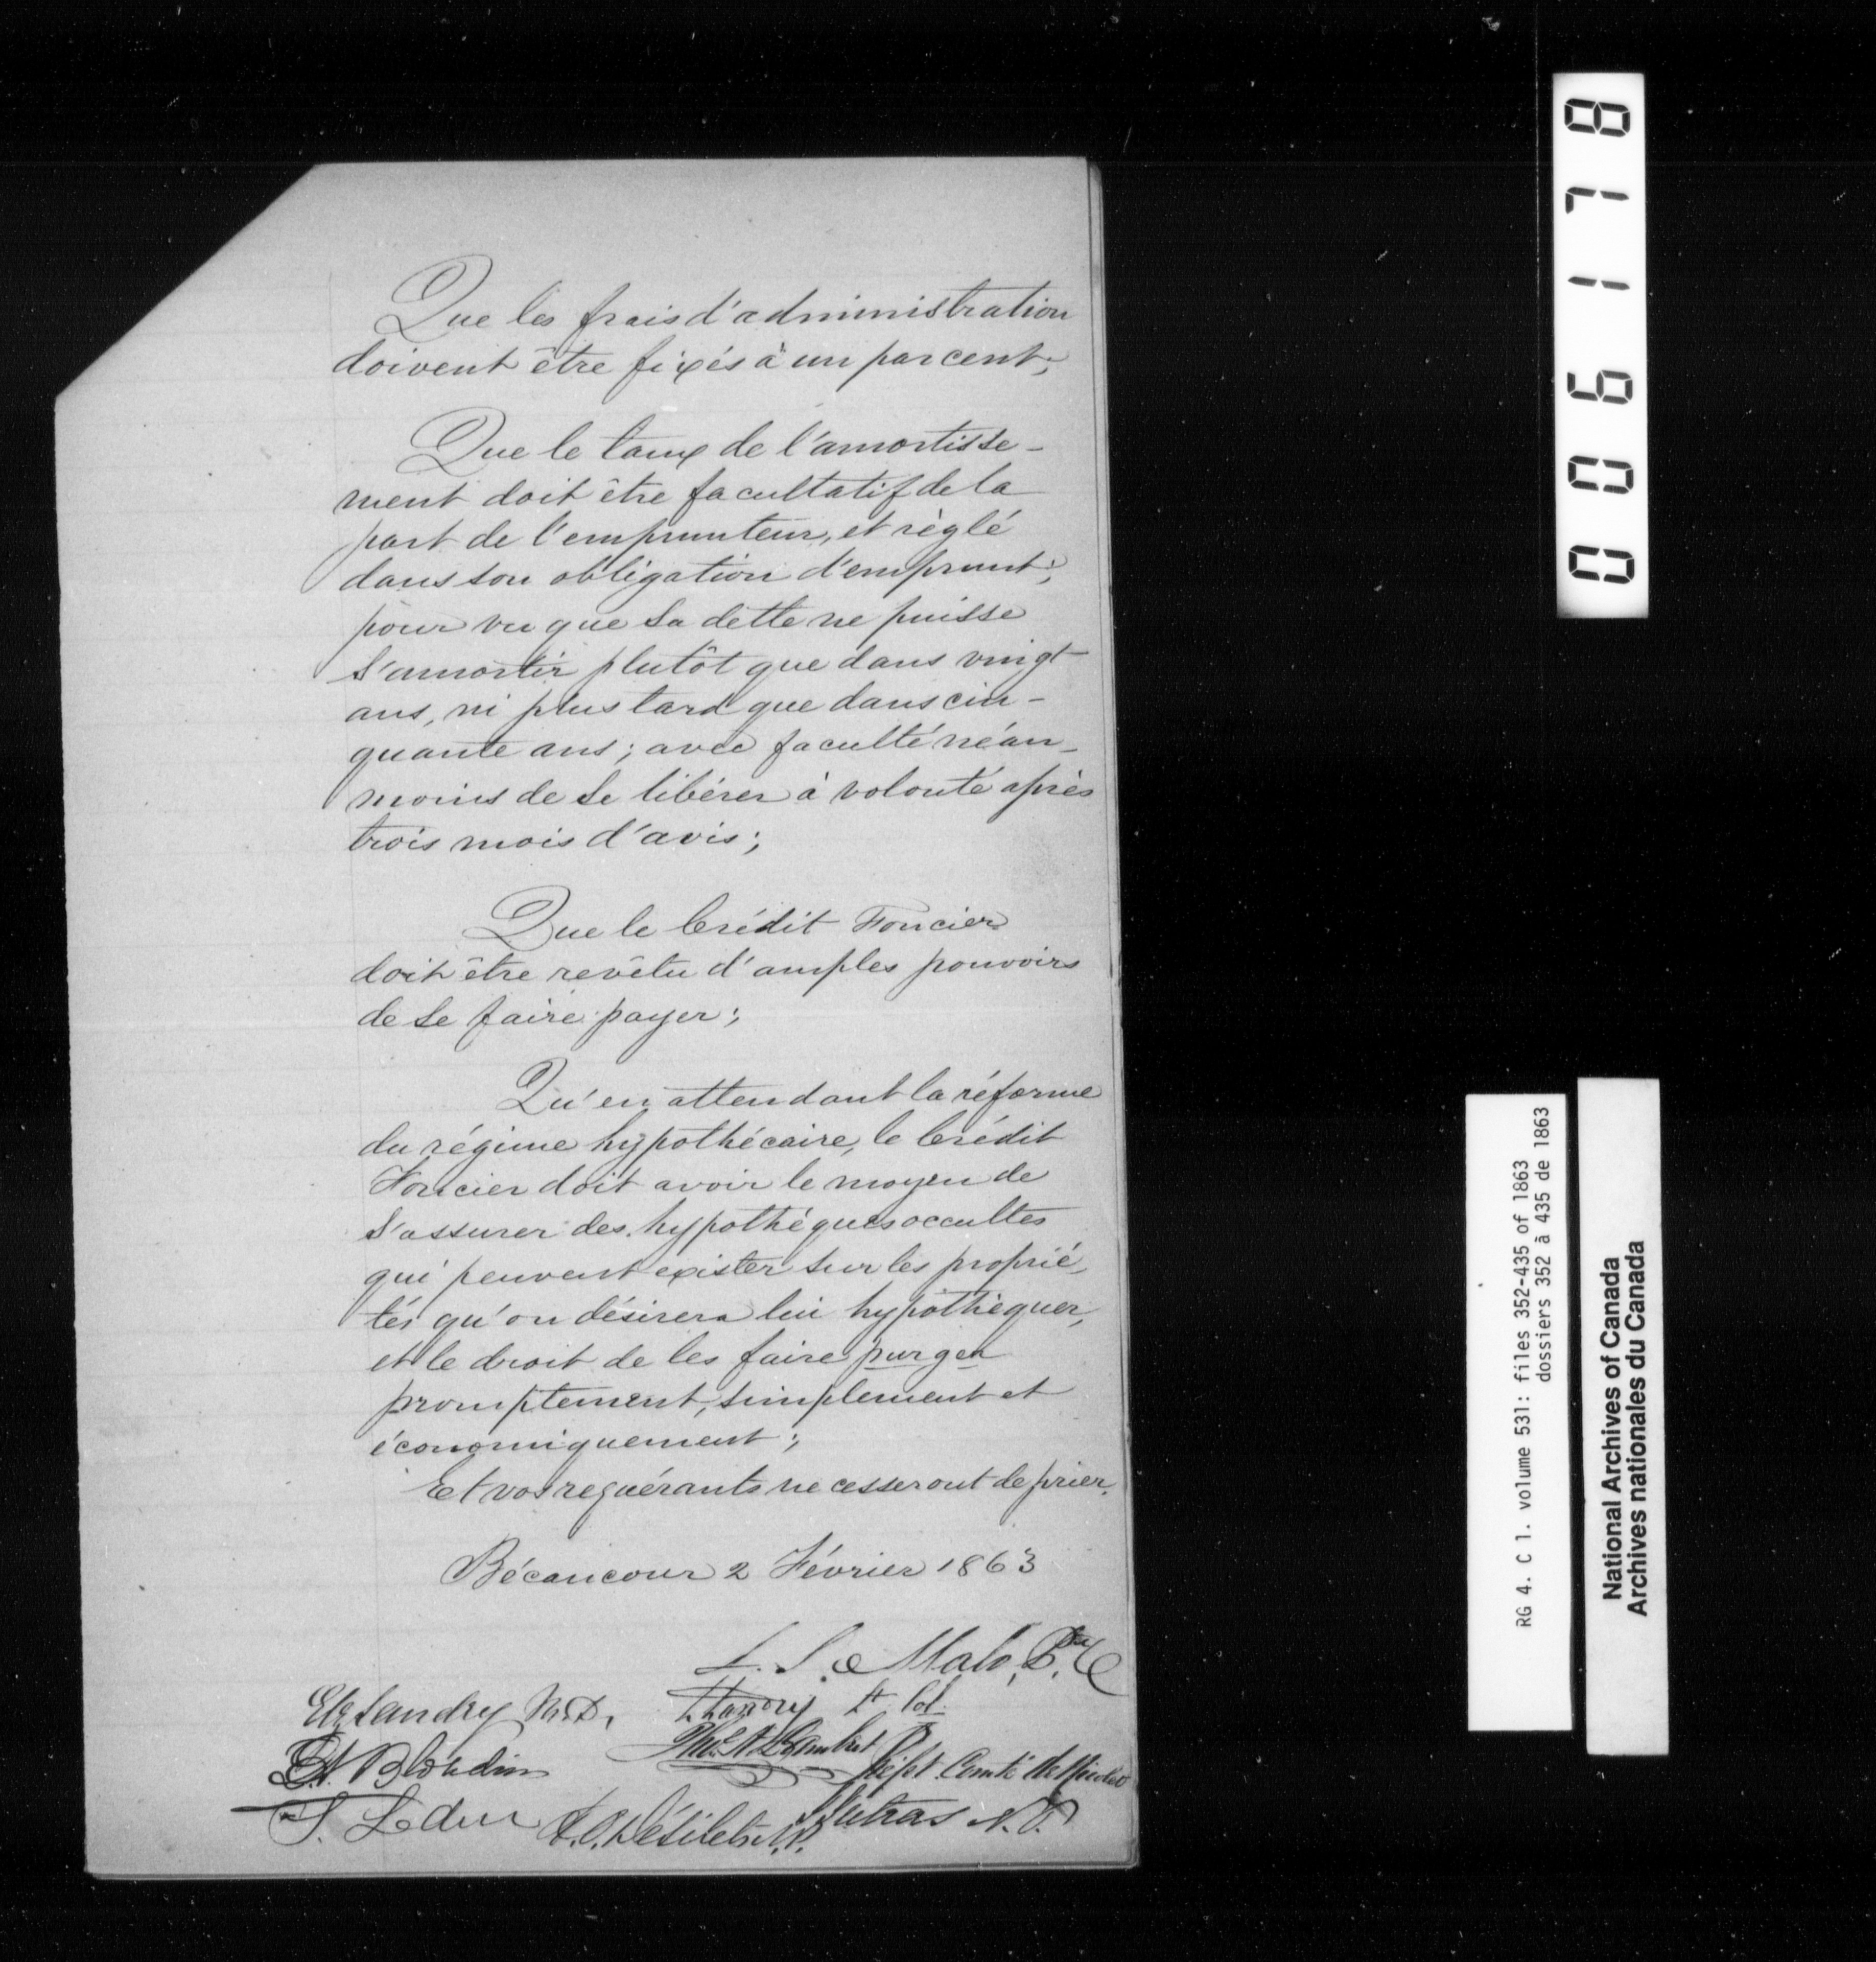 Que les frais d'administration
doivent être fixés à un par cent;
Que le taux de l'amortisse-
ment doit être facultatif de la
part de l'emprunteur, et règlé
dans son obligation d'emprunt;
pour vu que sa dette ne puisse
s'amortir plutôt que dans vingt
ans, ni plus tard que dans cin-
quante ans; avec faculté néan-
moins de se libérer à volonté après
trois mois d'avis;
Que le Crédit Foncier
doit être revêtu d'amples pouvoirs
de se faire payer;
Qu'en attendant la réforme
du régime hypothécaire, le Crédit
Foncier doit avoir le moyen de
s'assurer des hypothéques occultes
qui peuvent exister sur les proprié-
tés qu'on désirera lui hypothéquer,
et le droit de les faire purger
promptement, simplement et
économiquement;
Et vos requérants ne cesseront de prier.
Bécancour 2 Février 1863
L. S. Malo, Ptre
Landry M.D.
Landry Lt Col.
Blondin
Thos. Lambert
Préfet Comté de Nicolet
S. Leduc
Désilets N.P.
Dutras N.P.
0006178
RG 4. C 1. volume 531: files 352-435 of 1863
dossiers 352 à 435 de 1863
National Archives of Canada
Archives nationales du Canada